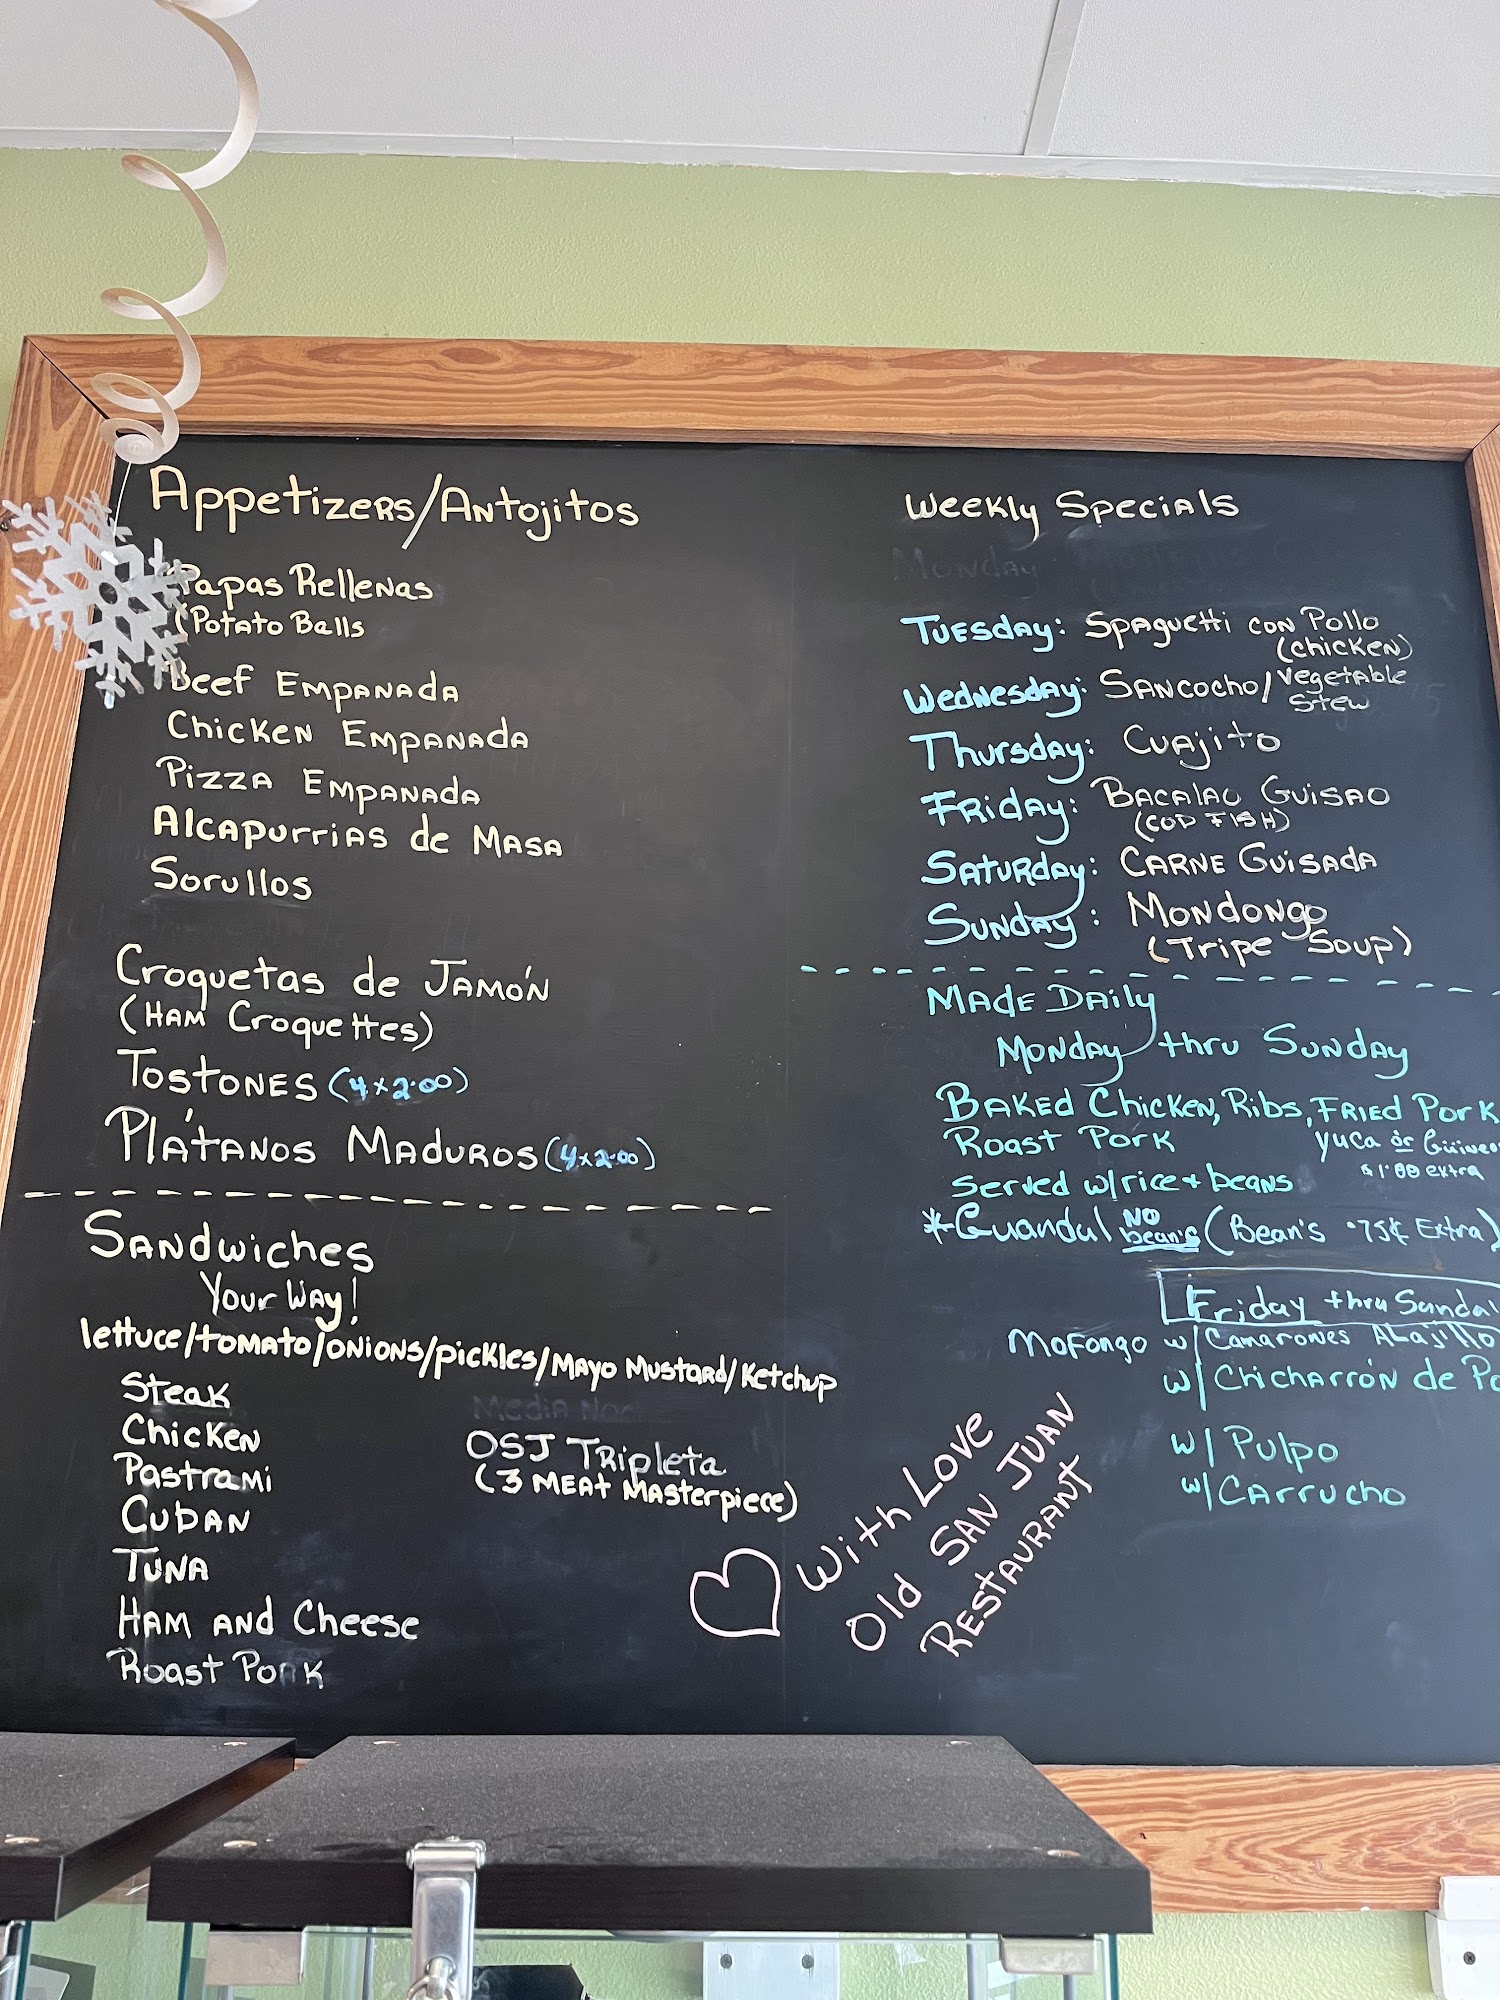 Appetizers/Antojitos
Papas Rellenas
(Potato Balls
Beef Empanada
Chicken Empanada
Pizza Empanada
Alcapurrias de Masa
Sorullos
Croquetas de Jamón
(Ham Croquettes)
Tostones (4 x 2.00)
Plátanos Maduros (4 x 2.00)
Sandwiches
Your Way!
lettuce/tomato/onions/pickles/Mayo Mustard/Ketchup
Steak
Chicken
Pastrami
Cuban
Tuna
Ham and Cheese
Roast Pork
OSJ Tripleta
(3 Meat Masterpiece)
With Love
Old San Juan
Restaurant
Weekly Specials
Monday
Tuesday: Spaguetti con Pollo
(chicken)
Wednesday: Sancocho/Vegetable
Stew
Thursday: Cuajito
Friday: Bacalao Guisao
(cod fish)
Saturday: Carne Guisada
Sunday: Mondongo
(Tripe Soup)
Made Daily
Monday thru Sunday
Baked Chicken, Ribs, Fried Pork
Roast Pork yuca or
$1.00 extra
Served w/rice + beans
*Guandul NO bean's (Bean's .75¢ Extra)
Friday thru Sunda
Mofongo w/Camarones Alajillo
w/Chicharrón de Po
w/Pulpo
w/Carrucho